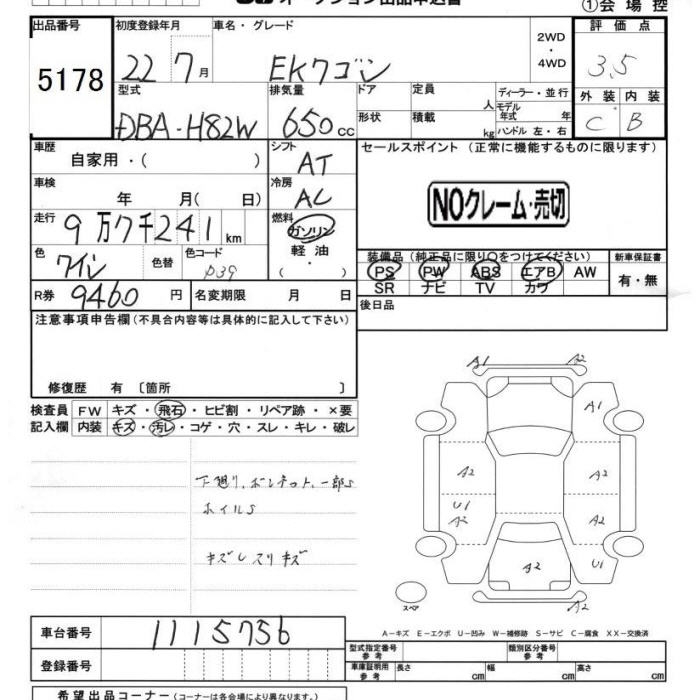 オークション出品申込書
①会場控
出品番号 初度登録年月 車名・グレード 2WD・4WD 評価点
5178 22 7月 EKワゴン 3.5
型式 排気量 ドア 定員 人 ディーラー・並行 外装 内装
DBA-H82W 650cc 形状 積載 kg モデル年式 年 ハンドル 左・右 C B
車歴 自家用・( ) シフト AT セールスポイント (正常に機能するものに限ります)
車検 年 月( 日) 冷房 AC
NOクレーム・売切
走行 9万7千241km 燃料 ガソリン・軽油・( )
色 ワイン 色替 色コード P39
装備品 (純正品に限り○をつけてください) 新車保証書
PS PW ABS エアB AW 有・無
SR ナビ TV カワ
R券 9460円 名変期限 月 日 後日品
注意事項申告欄 (不具合内容等は具体的に記入して下さい)
修復歴 有 〔箇所 〕
検査員 FW キズ・飛石・ヒビ割・リペア跡・×要
記入欄 内装 キズ・汚レ・コゲ・穴・スレ・キレ・破レ
下廻り、ボンネット、一部S
ホイルS
キズレスリキズ
A1 A2
A1
A2 A2
U1 A2 A2
A2 U1
スペア A2
A－キズ E－エクボ U－凹み W－補修跡 S－サビ C－腐食 XX－交換済
車台番号 1115756
型式指定番号 参考 類別区分番号 参考
登録番号 車庫証明用 参考 長さ cm 幅 cm 高さ cm
希望出品コーナー (コーナーは各会場により異なります。)